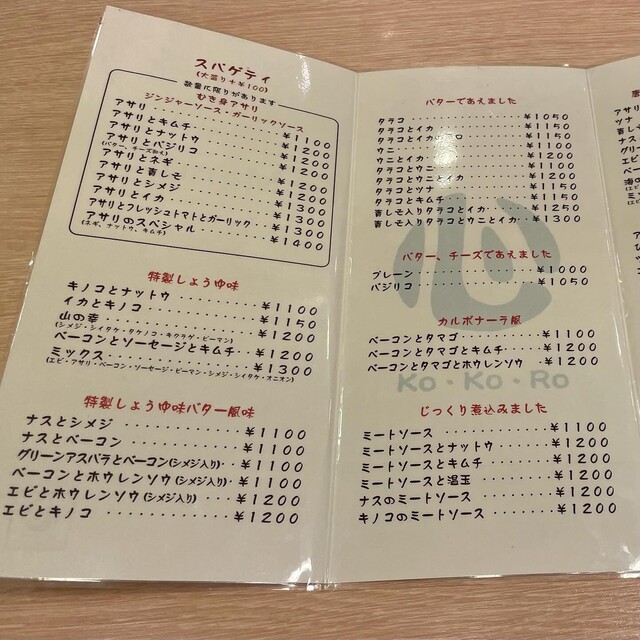 スパゲティ
(大盛り+¥100)
数量に限りがあります
むき身アサリ
ジンジャーソース・ガーリックソース
アサリ ¥1100
アサリとキムチ ¥1200
アサリとナットウ ¥1200
アサリとバジリコ ¥1200
(バター、チーズ和え)
アサリとネギ ¥1200
アサリと青しそ ¥1200
アサリとシメジ ¥1200
アサリとイカ ¥1300
アサリとフレッシュトマトとガーリック ¥1300
アサリのスペシャル ¥1400
(ネギ、ナットウ、キムチ)
特製しょうゆ味
キノコとナットウ ¥1100
イカとキノコ ¥1150
山の幸 ¥1200
(シメジ・シイタケ・タケノコ・キクラゲ・ピーマン)
ベーコンとソーセージとキムチ ¥1200
ミックス ¥1300
(エビ・アサリ・ベーコン・ソーセージ・ピーマン・シメジ・シイタケ・オニオン)
特製しょうゆ味バター風味
ナスとシメジ ¥1100
ナスとベーコン ¥1100
グリーンアスパラとベーコン(シメジ入り) ¥1100
ベーコンとホウレンソウ(シメジ入り) ¥1100
エビとホウレンソウ(シメジ入り) ¥1200
エビとキノコ ¥1200
バターであえました
タラコ ¥1050
タラコとイカ ¥1150
¥1150
ウニとイカ ¥1200
タラコとウニ ¥1100
タラコとウニとイカ ¥1200
タラコとツナ ¥1150
タラコとキムチ ¥1150
青しそ入りタラコとイカ ¥1250
青しそ入りタラコとウニとイカ ¥1300
バター、チーズであえました
プレーン ¥1000
バジリコ ¥1050
カルボナーラ風
ベーコンとタマゴ ¥1100
ベーコンとタマゴとキムチ ¥1200
ベーコンとタマゴとホウレンソウ ¥1200
心
Ko・Ko・Ro
じっくり煮込みました
ミートソース ¥1100
ミートソースとナットウ ¥1200
ミートソースとキムチ ¥1200
ミートソースと温玉 ¥1200
ナスのミートソース ¥1200
キノコのミートソース ¥1200